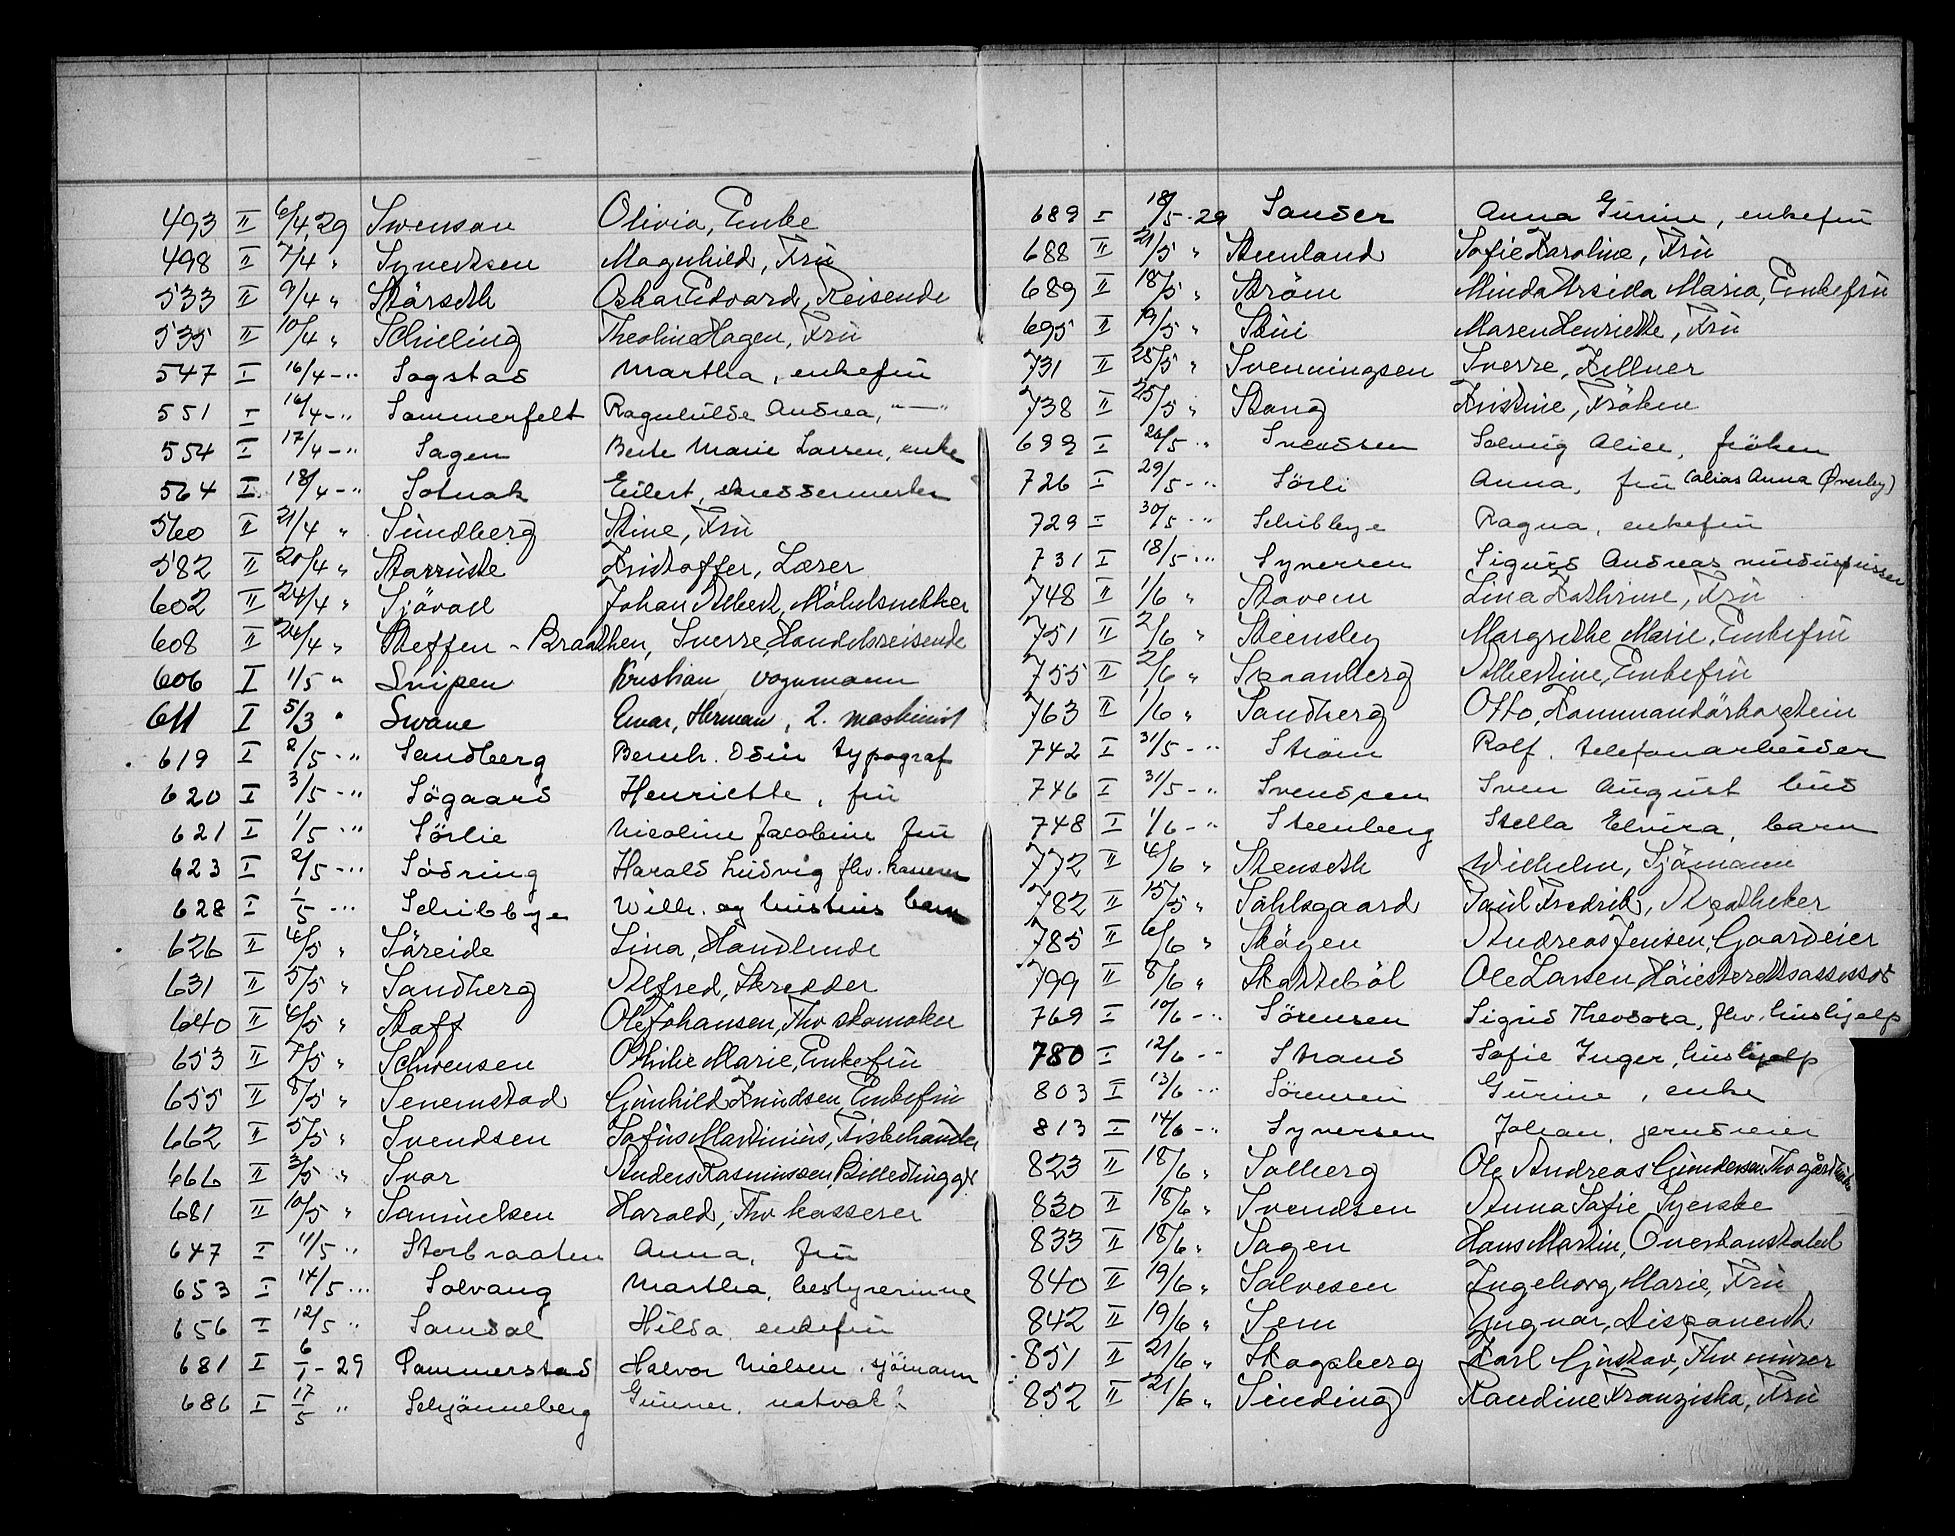 493 II 6/4 29 Swenson Olivia, Enke
498 II 7/4 " Syvertsen Magnhild, Frü
533 II 9/4 " Skärseth Oskar Edvard, Reisende
535 II 10/4 " Schieling Theoline Hagen, Frü
547 I 16/4 -"- Sogstad Martha, enkefrü
551 I 16/4 -"- Sommerfelt Ragnhilde Andrea, -"-
554 I 17/4 -"- Sagen Berte Marie Larsen, enke
564 I 18/4 -"- Solnak Eilert, skreddermester
560 II 21/4 " Sündberg Stine, Frü
582 II 20/4 " Starrüste Kristoffer, Lærer
602 II 24/4 " Sjövall Johan Albert, Möbelsnekker
608 II 26/4 " Steffen - Braathen, Sverre, Handelsreisende
606 I 1/5 " Snipen Kristian, vognmann
611 I 5/3 " Swane Einar, Herman, 2. maskinist
619 I 2/5 -"- Sandberg Bernh. Odin typograf
620 I 3/5 -"- Sögaard Henriette, frü
621 I 1/5 -"- Sörlie Nicoline Jacobine frü
623 I 2/5 -"- Södring Harald Lüdvig fhv. kasserer
628 I 1/5 -"- Schibbye Wilh. og hüstrüs barn
626 II 4/5 " Säreide Lina, Handlende
631 II 5/5 " Sandberg Alfred, Skredder
640 II 6/5 " Staff Ole Johansen, Fhv skomaker
653 II 7/5 " Schwensen Othilie Marie, Enkefrü
655 II 8/5 " Senemstad Günhild Knüdsen, Enkefrü
662 II 5/5 " Svendsen Sofüs Martiniüs, Fiskehandler
666 II 3/5 " Svor Anders Rasmüssen, Billedhügger
681 II 10/5 " Samüelsen Harald, Fhv kasserer
647 I 11/5 " Storbraaten Anna, frü
653 I 14/5 -"- Solvang Martha, bestyrerinne
656 I 12/5 " Samdal Hilda, enkefrü
681 I 6/1 - 29 Sommerstad Halvor Nielsen, sjömann
686 I 17/5 " Schjönneberg Günnar, natvakt
689 I 18/5 - 29 Sander Anna Gürine, enkefrü
688 II 21/5 " Steenland Sofie Karoline, Frü
689 II 18/5 " Ström Minda Ursida Maria, Enkefrü
695 II 19/5 " Maren Henriette, Frü
731 II 28/5 " Svenningsen Sverre, Kellner
738 II 25/5 " Stang Kristine, Fröken
699 I 26/5 " Svendsen Solveig Alice, fröken
726 I 29/5 -"- Sörli Anna, frü (alias Anna Øverby)
729 I 30/5 -"- Schibbye Ragna, enkefrü
731 I 18/5 -"- Syversen Sigurd Andreas
748 II 1/6 " Stavem Lina Kathrine, Frü
751 II 2/6 " Steensby Margrethe Marie, Enkefrü
755 II 2/6 " Spaanberg Albertine, Enkefrü
763 II 1/6 " Sandberg Otto, Kommandörkaptein
742 I 31/5 -"- Ström Rolf, telefonarbeider
746 I 31/5 -"- Svendsen Sven August büd
748 I 1/6 -"- Steenberg Stella Elvira, barn
772 II 4/6 " Stenseth Wilhelm, Sjömann
782 II 15/5 " Sahlsgaard Paül Fredrik, Apotheker
785 II 6/6 " Skögen Andreas Jensen, Gaardeier
799 II 8/6 " Skatteböl Ole Larsen, Höiesterettsassessor
769 I 10/6 -"- Sörensen Sigrid Theodora, fhv. hüshjelp
780 I 12/6 -"- Strand Sofie Inger, hüshjelp
803 I 13/6 -"- Sörensen Gürine, enke
813 I 14/6 -"- Syversen Johan, gårdeier
823 II 18/6 " Solberg Ole Andreas Gündersen
830 II 18/6 " Svendsen Anna Sofie, Syerske
833 II 18/6 " Sagen Hans Martin, Overkonstabel
840 II 19/6 " Salvesen Ingeborg Marie, Frü
842 II 19/6 " Sem Yngvar, Disponent
851 II 21/6 " Skogsberg Karl Güstav, Fhv mürer
852 II 21/6 " Sinding Randine Franziska, Frü